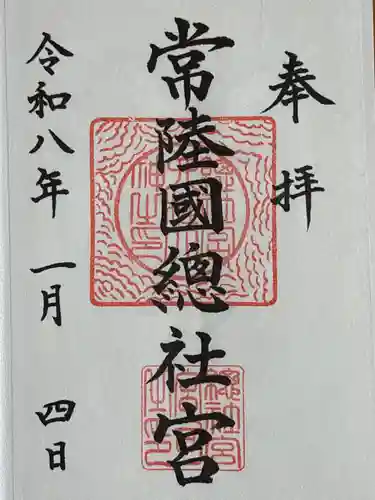 奉拝
常陸國總社宮
令和八年一月四日